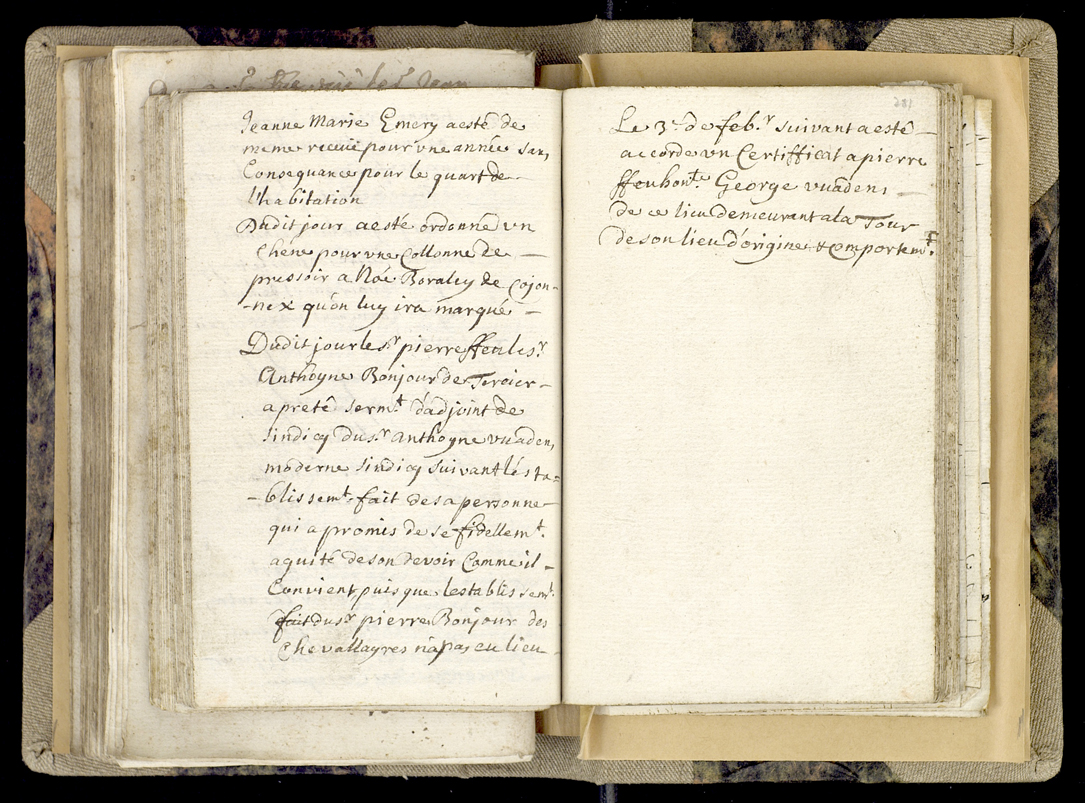 Jeanne Marie Emery a esté de
meme receüe pour vne année san,
Consequance pour le quart de
l'habitation
Dudit jour a esté ordonné vn
Chéne pour vne Collonne de
pressoir a Noé Boraley de Cojon-
-nex qu'on luy ira marqué
Dudit jour le Sr pierre ffeu le Sr
Anthoyne Bonjour de
a preté sermt d'adjoint de
Sindicq du Sr Anthoyne vuaden,
moderne Sindicq suivant l'ésta-
-blissemt fait de sa personne
qui a promis de sé fidellemt
aquité de son devoir Comme il
Convient puis que lestablissemt
fait du Sr pierre Bonjour des
Chevallayres n'a pas eu lieu
281
Le 3e de febr suivant a esté
accordé vn Certifficat a pierre
ffeu honte George vuadens
de ce lieu demeurant a la Tour
de son lieu d'origine & comportemt